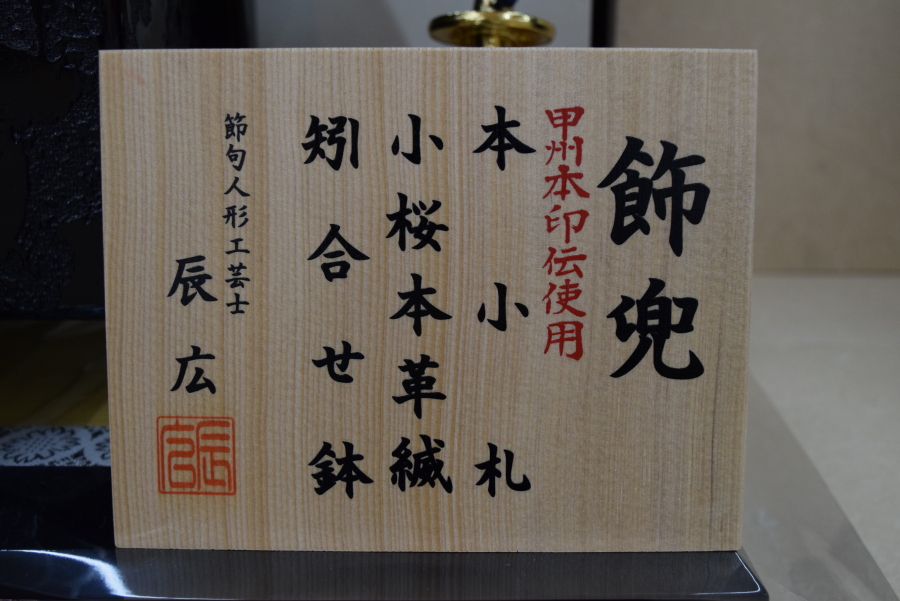 飾兜
甲州本印伝使用
本小札
小桜本革縅
矧合せ鉢
節句人形工芸士
辰広
辰広